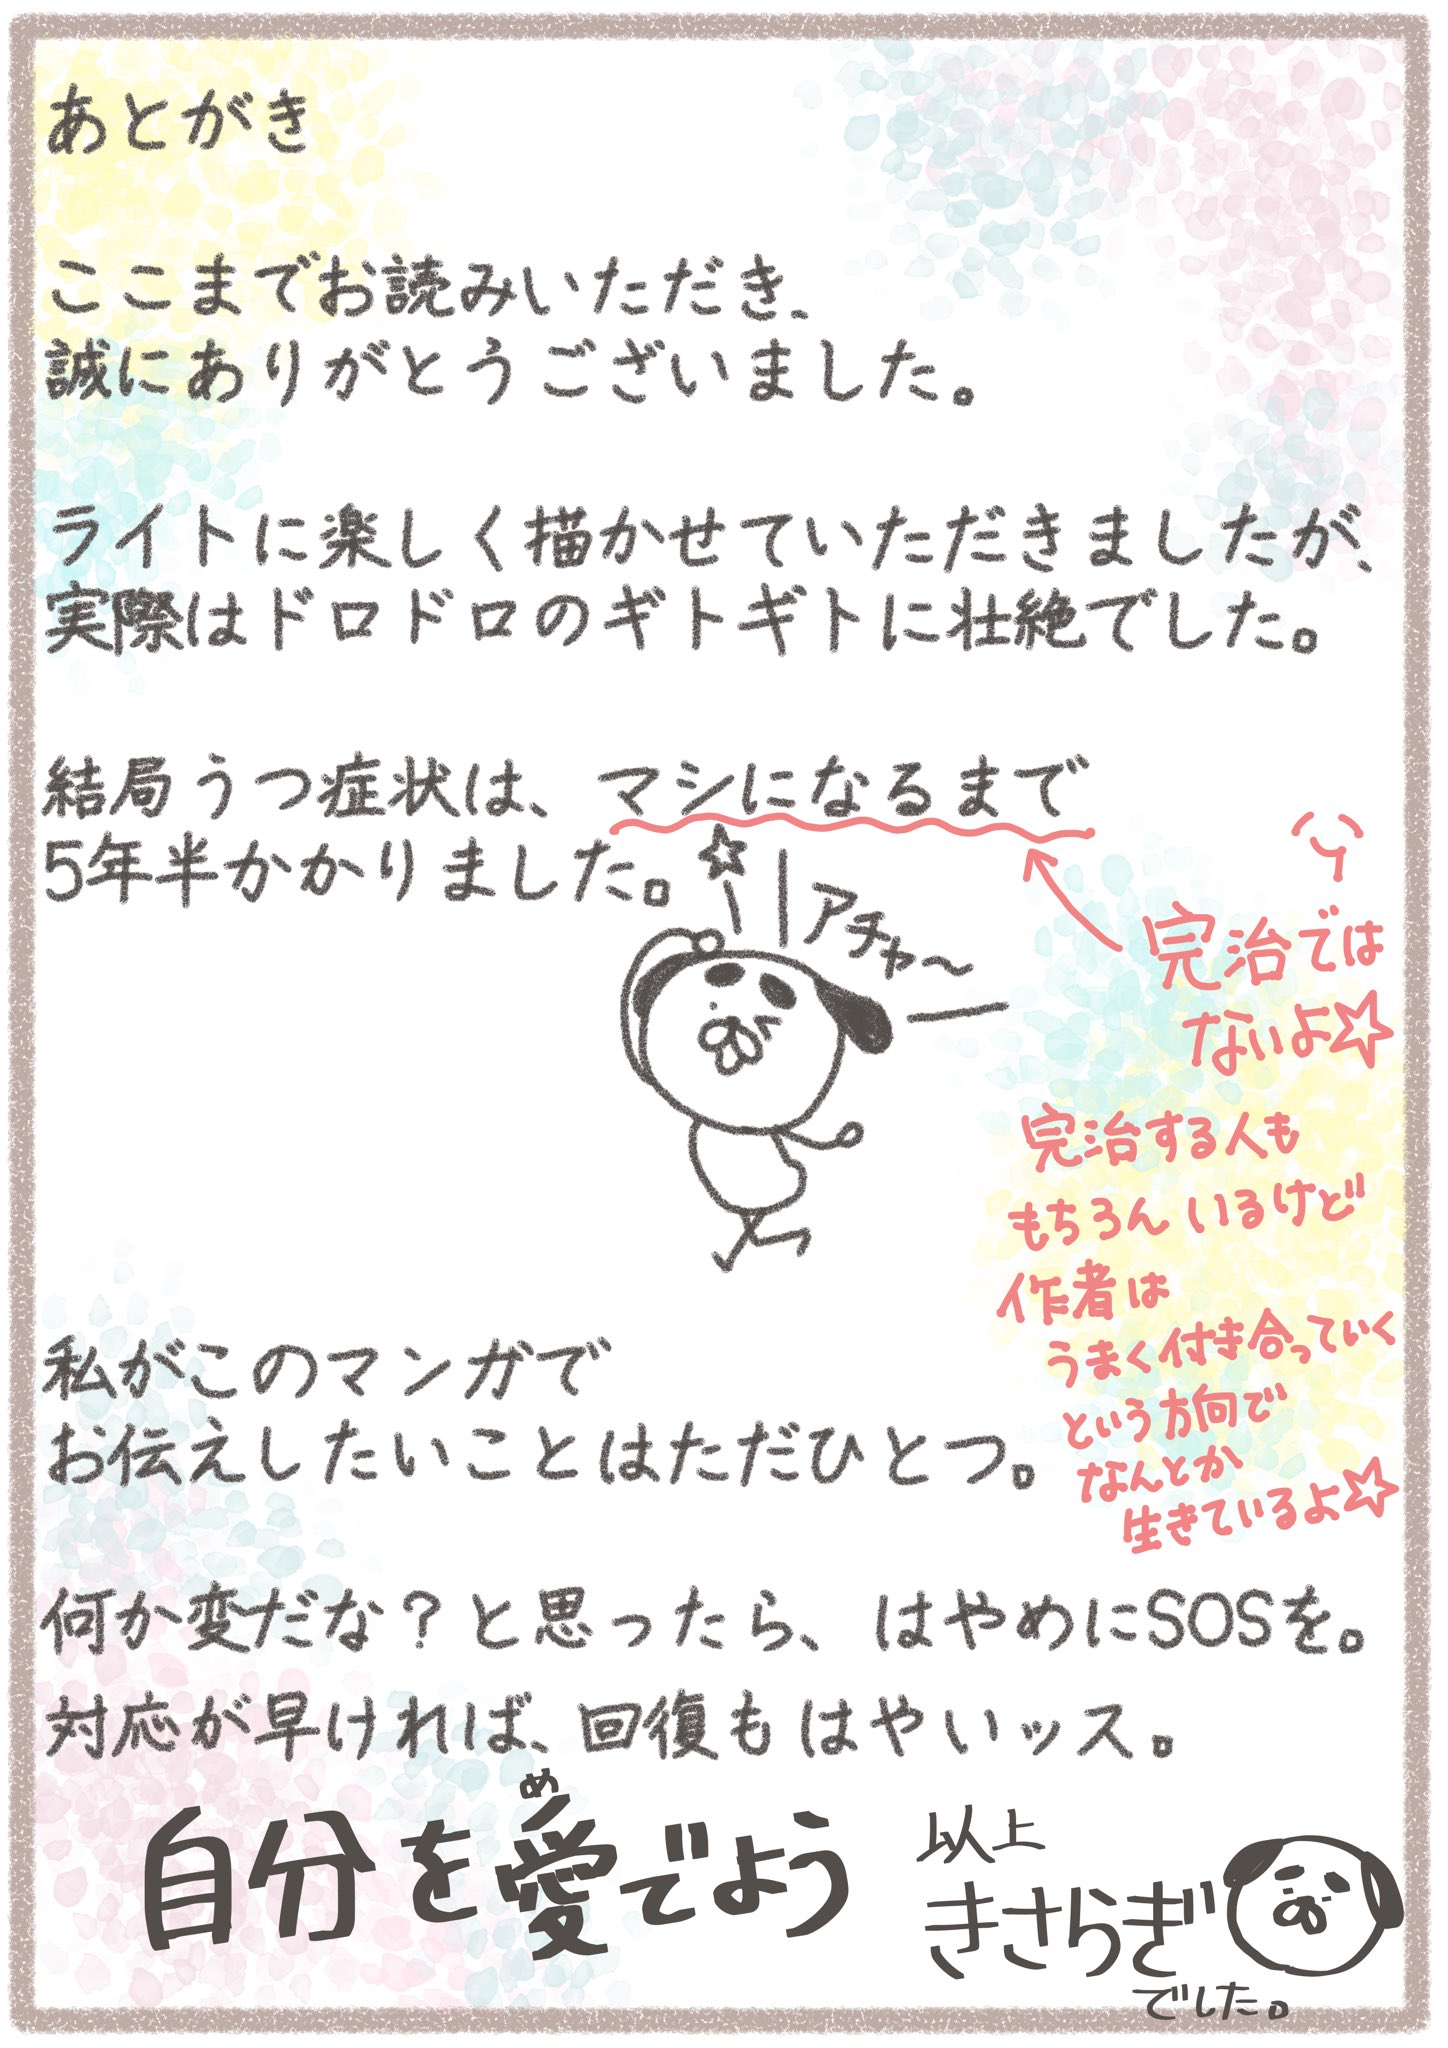 あとがき
ここまでお読みいただき、
誠にありがとうございました。
ライトに楽しく描かせていただきましたが、
実際はドロドロのギトギトに壮絶でした。
結局うつ症状は、マシになるまで
5年半かかりました。
アチャ〜
完治では
ないよ☆
完治する人も
もちろんいるけど
作者は
うまく付き合っていく
という方向で
なんとか
生きているよ☆
私がこのマンガで
お伝えしたいことはただひとつ。
何か変だな?と思ったら、はやめにSOSを。
対応が早ければ、回復もはやいッス。
め
自分を愛でよう
以上
きさらぎ
でした。